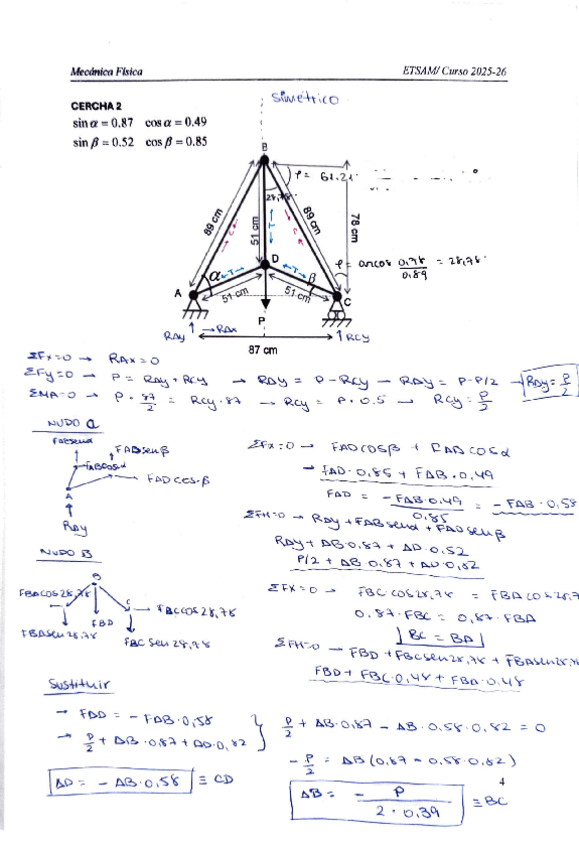 Mecánica Física
ETSAM/ Curso 2025-26
CERCHA 2
sin α = 0.87 cos α = 0.49
sin β = 0.52 cos β = 0.85
simétrico
B
φ = 61.21
28,78°
89 cm
51 cm
89 cm
78 cm
φ = arcos 0,78 / 0,89 = 28,78°
D
α
β
T
T
T
A
51 cm
51 cm
C
P
RAy
→RAx
RCy
87 cm
ΣFx=0 → RAx=0
ΣFy=0 → P = RAy+RCy → RAy = P-RCy → RAy = P-P/2 → RAy = P/2
ΣMA=0 → P · 87/2 = RCy·87 → RCy = P·0.5 → RCy = P/2
NUDO a
FABsenα
FADsenβ
FABcosα
FADCOS·β
A
RAy
ΣFx=0 → FADCOSβ + FABCOSα
→ FAD·0,85 + FAB·0,49
FAD = -FAB·0,49 / 0,85 = -FAB·0,58
ΣFH=0 → RAy + FABsenα + FADsenβ
RAy + AB·0,87 + AD·0.52
P/2 + AB·0,87 + AD·0,82
NUDO B
B
FBACOS28,78
C
FBCCOS28,78
FBD
FBASen28,78
FBC Sen 28,78
ΣFX=0 → FBCCOS28,78 = FBACOS28,7
0.87·FBC = 0,87·FBA
BC = BA
ΣFH=0 → FBD + FBCsen28,78 + FBAsen28,78
FBD + FBC·0,48 + FBA·0.48
Sustituir
→ FAD = -FAB·0,58
→ P/2 + AB·0.87 + AD·0,82
P/2 + AB·0.87 - AB·0.58·0.82 = 0
- P/2 = AB (0.87 - 0.58·0.82)
4
AD = - AB·0.58 ≡ CD
AB = - P / 2·0.39 ≡ BC